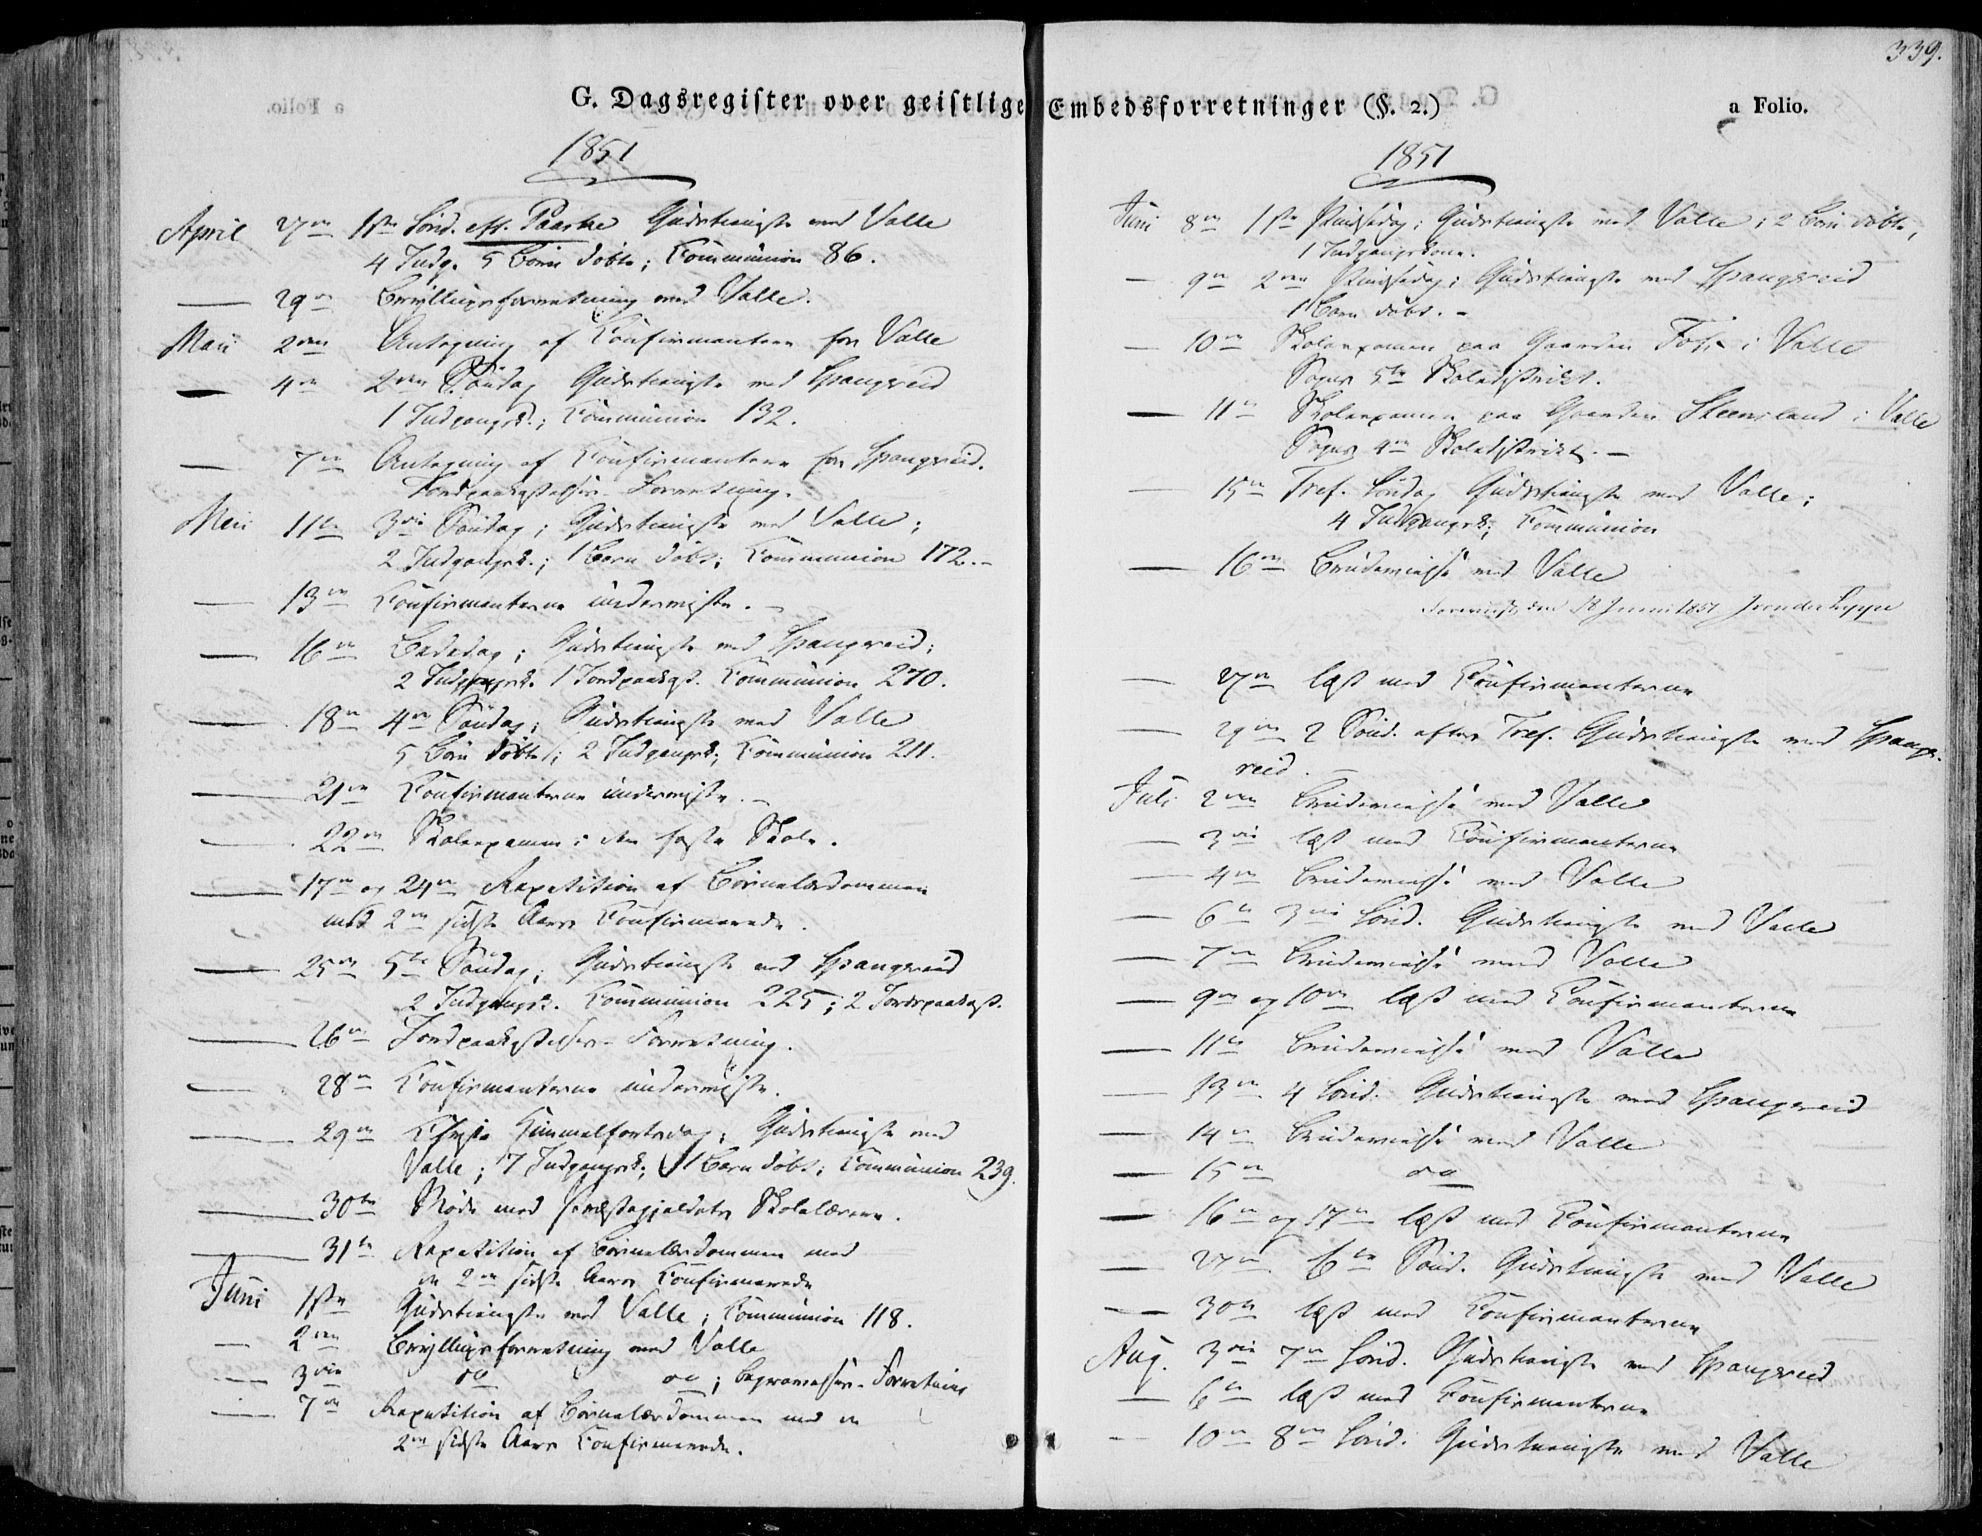 339.
G. Dagsregister over geistlige Embedsforretninger (§. 2.)
a Folio.
1851
April 27de 1ste Sönd. eft. Paaske Gudstieneste ved Valle
4 Indg. 5 Börn döbte; Communion 86.
— 29de Bryllupsforretning ved Valle.
Maii 2den Antagning af Konfirmanter for Valle
— 4de 2den Söndag Gudstieneste ved Spangereid
1 Indgangsk.; Communion 132.
— 7de Antagning af Konfirmanter for Spangereid.
Jordpaakastelses-Forretning.
Maii 11te 3die Söndag; Gudstieneste ved Valle;
2 Indgangsk.; 1 Barn döbt; Communion 172.–
— 13de Confirmanterne underviste. –
— 16de Bededag; Gudstieneste ved Spangereid;
2 Indgangsk. 1 Jordpaakast. Communion 270.
— 18de 4de Söndag; Gudstieneste ved Valle
5 Börn döbte; 2 Indgangsk; Communion 211.
— 21de Confirmanterne underviste. –
— 22de Skolexamen i den faste Skole.
— 17de og 24de Repetition af Börnelærdommen
med 2de sidste Aars Confirmerede.
— 25de 5te Söndag; Gudstieneste ved Spangereid
2 Indgangsk. Communion 225; 2 Jordpaakast.
— 26de Jordpaakastelses-Forretning.
— 28de Confirmanterne underviste.
— 29de Christi Himmelfartsdag; Gudstieneste ved
Valle; 7 Indgangsk; 1 Barn döbt; Communion 239.
— 30te Möde med Præstegjeldets Skolelærere.
— 31te Repetition af Börnelærdommen med
de 2de sidste Aars Confirmerede
Juni 1ste Gudstieneste ved Valle; Communion 118.
— 2den Brylluppsforretning ved Valle
— 3die do do; Begravelses-Forretning
— 7de Repetition af Börnelærdommen med de
2de sidste Aars Confirmerede.
1851
Juni 8de 1ste Pintsedag; Gudstieneste ved Valle; 2 Börn döbte,
1 Indgangskone.
— 9de 2den Pintsedag; Gudstieneste ved Spangereid
1 Barn döbt. –
— 10de Skolexamen paa Gaarden Foss i Valle
Sogns 5te Skoledistrikt.
— 11te Skolexamen paa Gaarden Steensland i Valle
Sogns 4de Skoledistrikt. –
— 15de Tref. Söndag Gudstieneste ved Valle;
4 Indgangsk; Communion
— 16de Brudevielse ved Valle
den 18 Juni 1851 J von der Lippe
— 27de læst med Confirmanterne
— 29de 2 Sönd. efter Tref. Gudstieneste ved Spange-
reid. –
Juli 2den Brudevielse ved Valle
— 3die læst med Confirmanterne
— 4de Brudevielse ved Valle
— 6te 3die Sönd. Gudstieneste ved Valle
— 7de Brudevielse ved Valle
— 9de og 10de læst med Confirmanterne
— 11te Brudevielse ved Valle
— 13de 4 Sönd. Gudstieneste ved Spangereid
— 14de Brudevielse ved Valle
— 15de do
— 16de og 17de læst med Confirmanterne
— 27de 6te Sönd. Gudstieneste ved Valle
— 30te læst med Confirmanterne
Aug. 3die 7de Sönd. Gudstieneste ved Spangereid
— 6te læst med Confirmanterne
— 10de 8de Sönd. Gudstieneste ved Valle